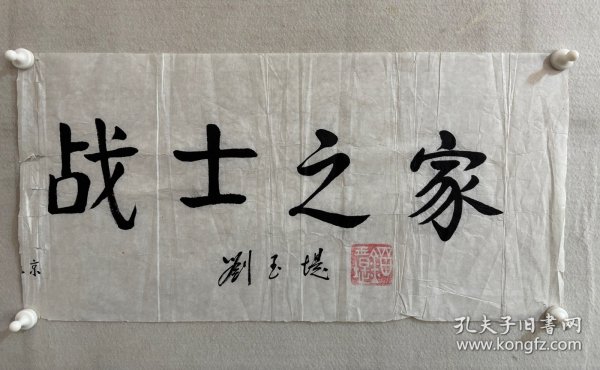 战士之家
京
劉玉堤
孔夫子旧书网
www.kongfz.com